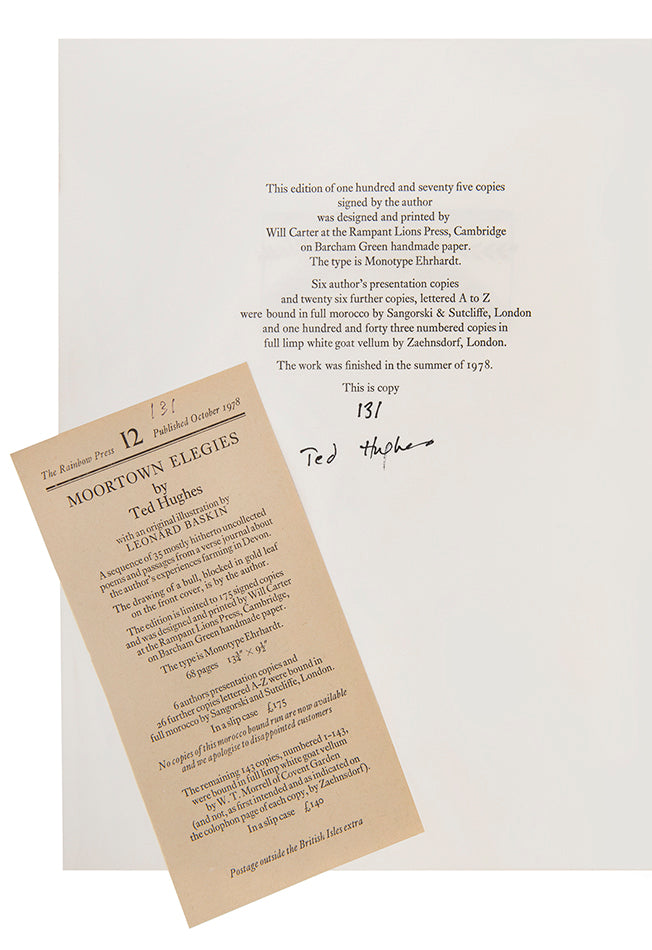 This edition of one hundred and seventy five copies
signed by the author
was designed and printed by
Will Carter at the Rampant Lions Press, Cambridge
on Barcham Green handmade paper.
The type is Monotype Ehrhardt.
Six author's presentation copies
and twenty six further copies, lettered A to Z
were bound in full morocco by Sangorski & Sutcliffe, London
and one hundred and forty three numbered copies in
full limp white goat vellum by Zaehnsdorf, London.
The work was finished in the summer of 1978.
This is copy
131
Ted Hughes
131
The Rainbow Press 12 Published October 1978
MOORTOWN ELEGIES
by
Ted Hughes
with an original illustration by
LEONARD BASKIN
A sequence of 35 mostly hitherto uncollected
poems and passages from a verse journal about
the author's experiences farming in Devon.
The drawing of a bull, blocked in gold leaf
on the front cover, is by the author.
The edition is limited to 175 signed copies
and was designed and printed by Will Carter
at the Rampant Lions Press, Cambridge,
on Barcham Green handmade paper.
The type is Monotype Ehrhardt.
68 pages 13¾" × 9½"
6 authors presentation copies and
26 further copies lettered A-Z were bound in
full morocco by Sangorski and Sutcliffe, London.
In a slip case £175
No copies of this morocco bound run are now available
and we apologise to disappointed customers
The remaining 143 copies, numbered 1-143,
were bound in full limp white goat vellum
by W. T. Morrell of Covent Garden
(and not, as first intended and as indicated on
the colophon page of each copy, by Zaehnsdorf).
In a slip case £140
Postage outside the British Isles extra